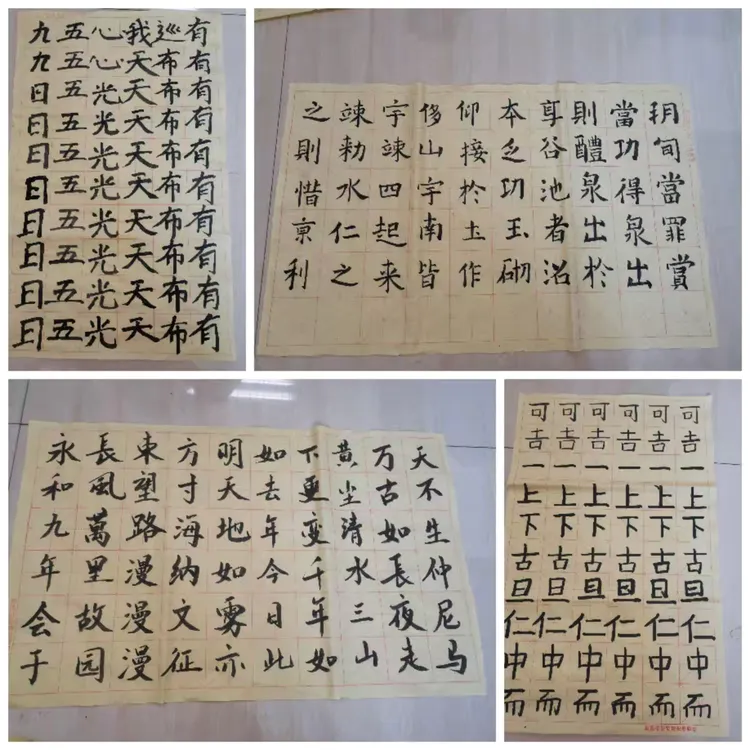 九五心我巡有
九五心天布有
日五光天布有
日五光天布有
日五光天布有
日五光天布有
日五光天布有
日五光天布有
日五光天布有
日五光天布有
旬當罪賞
當功得泉出
則醴泉出於
谷池者沼
本乏功玉砌
仰接於土作
侈山宇南皆
宇竦四起来
竦勑水仁之
之則惜京利
天不生仲尼马
万古如長夜走
黄尘清水三山
下更变千年如
如去年今日此
明天地如雾亦
方寸海纳文征
東望路漫漫漫
長風萬里故园
永和九年会于
可可可可可可
吉吉吉吉吉吉
一一一一一一
上上上上上上
下下下下下下
古古古古古古
旦旦旦旦旦旦
仁仁仁仁仁仁
中中中中中中
而而而而而而